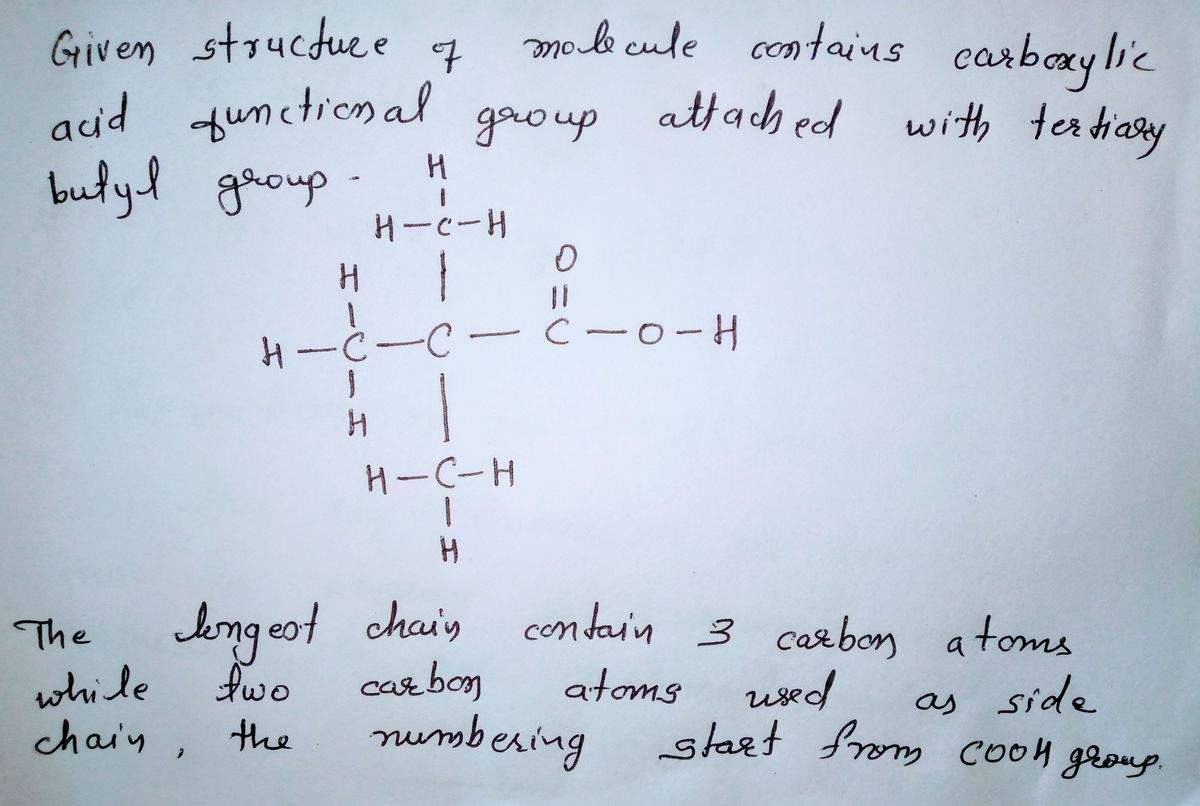 Given structure of molecule contains carboxylic
acid functional group attached with tertiary
butyl group.
H
H-C-H
H O
H-C-C-C-O-H
H
H-C-H
H
The longest chain contain 3 carbon atoms
while two carbon atoms used as side
chain, the numbering start from COOH group.